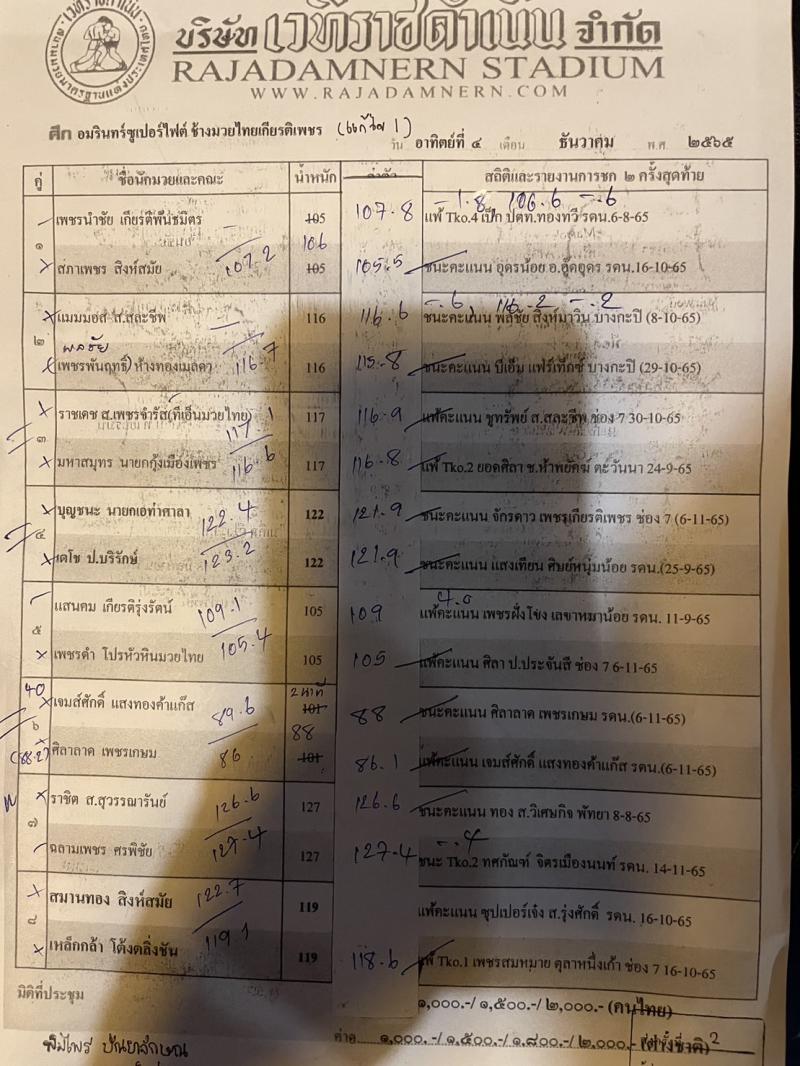 บริษัท เวทีราชดำเนิน จำกัด
RAJADAMNERN STADIUM
WWW.RAJADAMNERN.COM
ศึก อมรินทร์ซูเปอร์ไฟต์ ช้างมวยไทยเกียรติเพชร (แก้ไข 1) วัน อาทิตย์ที่ ๔ เดือน ธันวาคม พ.ศ. ๒๕๖๕
คู่ ชื่อนักมวยและคณะ น้ำหนัก สถิติและรายงานการชก ๒ ครั้งสุดท้าย
-1.8 106.6 -.6
เพชรนำชัย เกียรติพันธมิตร 105 107.8 แพ้ Tko.4 เป็ก ปตท.ทองทวี รดน.6-8-65
๑ 106
สภาเพชร สิงห์สมัย 107.2 105 105.5 ชนะคะแนน อุดรน้อย อ.อู๊ดอุดร รดน.16-10-65
-.6 116.2 -.2
แมมมอส ส.สละชีพ 116 116.6 ชนะคะแนน พลชัย สิงห์มาวิน บางกะปิ (8-10-65)
๒ พลชัย
(เพชรพันฤทธิ์) ห้างทองเมลดา 116.7 116 115.8 ชนะคะแนน บีเอ็ม แฟร์เท็กซ์ บางกะปิ (29-10-65)
ราชเดช ส.เพชรจำรัส(ทีเอ็นมวยไทย) 117.1 117 116.9 แพ้คะแนน ชูทรัพย์ ส.สละชีพ ช่อง 7 30-10-65
๓
มหาสมุทร นายกกุ้งเมืองเพชร 116.6 117 116.8 แพ้ Tko.2 ยอดศิลา ช.ห้าพยัคฆ์ ตะวันนา 24-9-65
บุญชนะ นายกเอท่าศาลา 122.4 122 121.9 ชนะคะแนน จักรดาว เพชรเกียรติเพชร ช่อง 7 (6-11-65)
๔
เดโช ป.บริรักษ์ 123.2 122 121.9 ชนะคะแนน แสงเทียน ศิษย์หนุ่มน้อย รดน.(25-9-65)
แสนคม เกียรติรุ่งรัศน์ 109.1 105 109 แพ้คะแนน เพชรฝั่งโขง เลขาหมาน้อย รดน. 11-9-65
๕
เพชรดำ โปรหัวหินมวยไทย 105.4 105 105 แพ้คะแนน ศิลา ป.ประจันสี ช่อง 7 6-11-65
40 2 นาที
เจมส์ศักดิ์ แสงทองค้าแก๊ส 89.6 101 88 ชนะคะแนน ศิลาลาด เพชรเกษม รดน.(6-11-65)
๖ 88
ศิลาลาด เพชรเกษม 86 101 86.1 แพ้คะแนน เจมส์ศักดิ์ แสงทองค้าแก๊ส รดน.(6-11-65)
ราชิต ส.สุวรรณารันย์ 126.6 127 126.6 ชนะคะแนน ทอง ส.วิเศษกิจ พัทยา 8-8-65
๗ -.4
ฉลามเพชร ศรพิชัย 127.4 127 127.4 ชนะ Tko.2 ทศกัณฑ์ จิตรเมืองนนท์ รดน. 14-11-65
สมานทอง สิงห์สมัย 122.7 119 แพ้คะแนน ซุปเปอร์เจ๋ง ส.รุ่งศักดิ์ รดน. 16-10-65
๘
เหล็กกล้า โค้งตลิ่งชัน 119.1 119 118.6 แพ้ Tko.1 เพชรสมหมาย ตุลาหนึ่งเก้า ช่อง 7 16-10-65
มิติที่ประชุม ๑,๐๐๐.-/ ๑,๕๐๐.-/ ๒,๐๐๐.- (คนไทย)
๑,๐๐๐. -/ ๑,๕๐๐.-/ ๑,๘๐๐.-/ ๒,๐๐๐.-